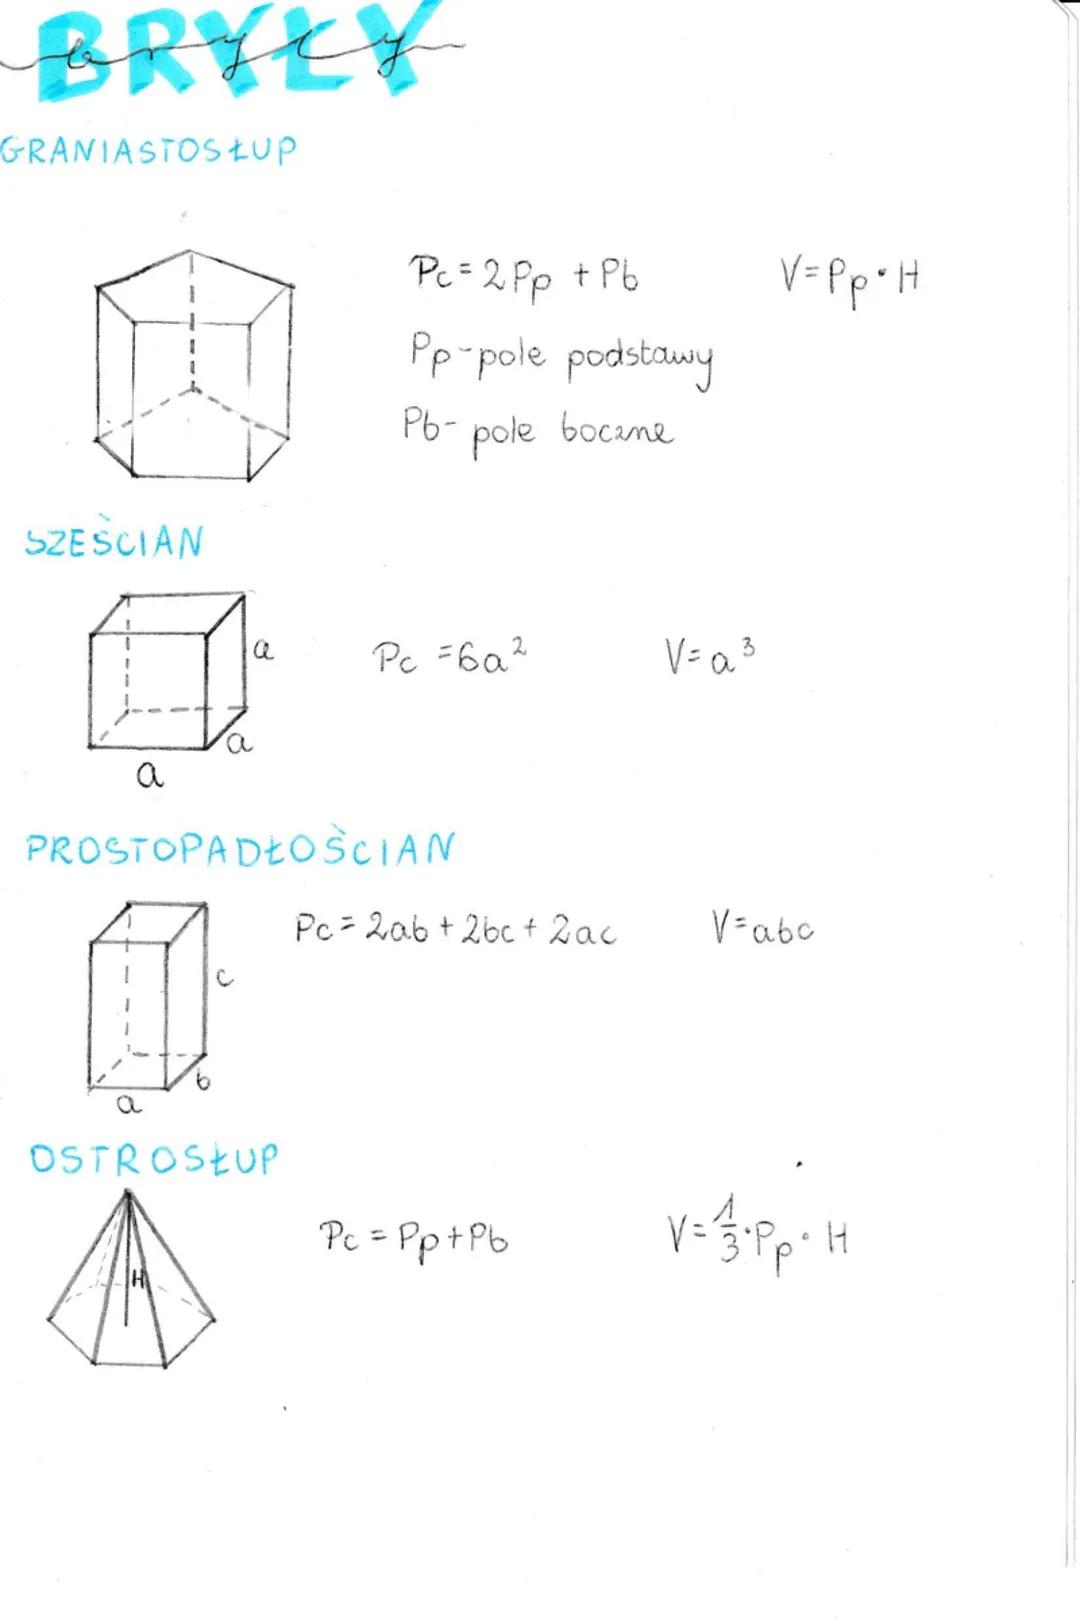 BRYŁY
bryły
GRANIASTOSŁUP
Pc = 2Pp + Pb V=Pp·H
Pp-pole podstawy
Pb- pole boczne
SZEŚCIAN
a
Pc =6a² V=a³
a
a
PROSTOPADŁOŚCIAN
Pc = 2ab + 2bc + 2ac V=abc
c
b
a
OSTROSŁUP
Pc = Pp+Pb V=1/3·Pp·H
H